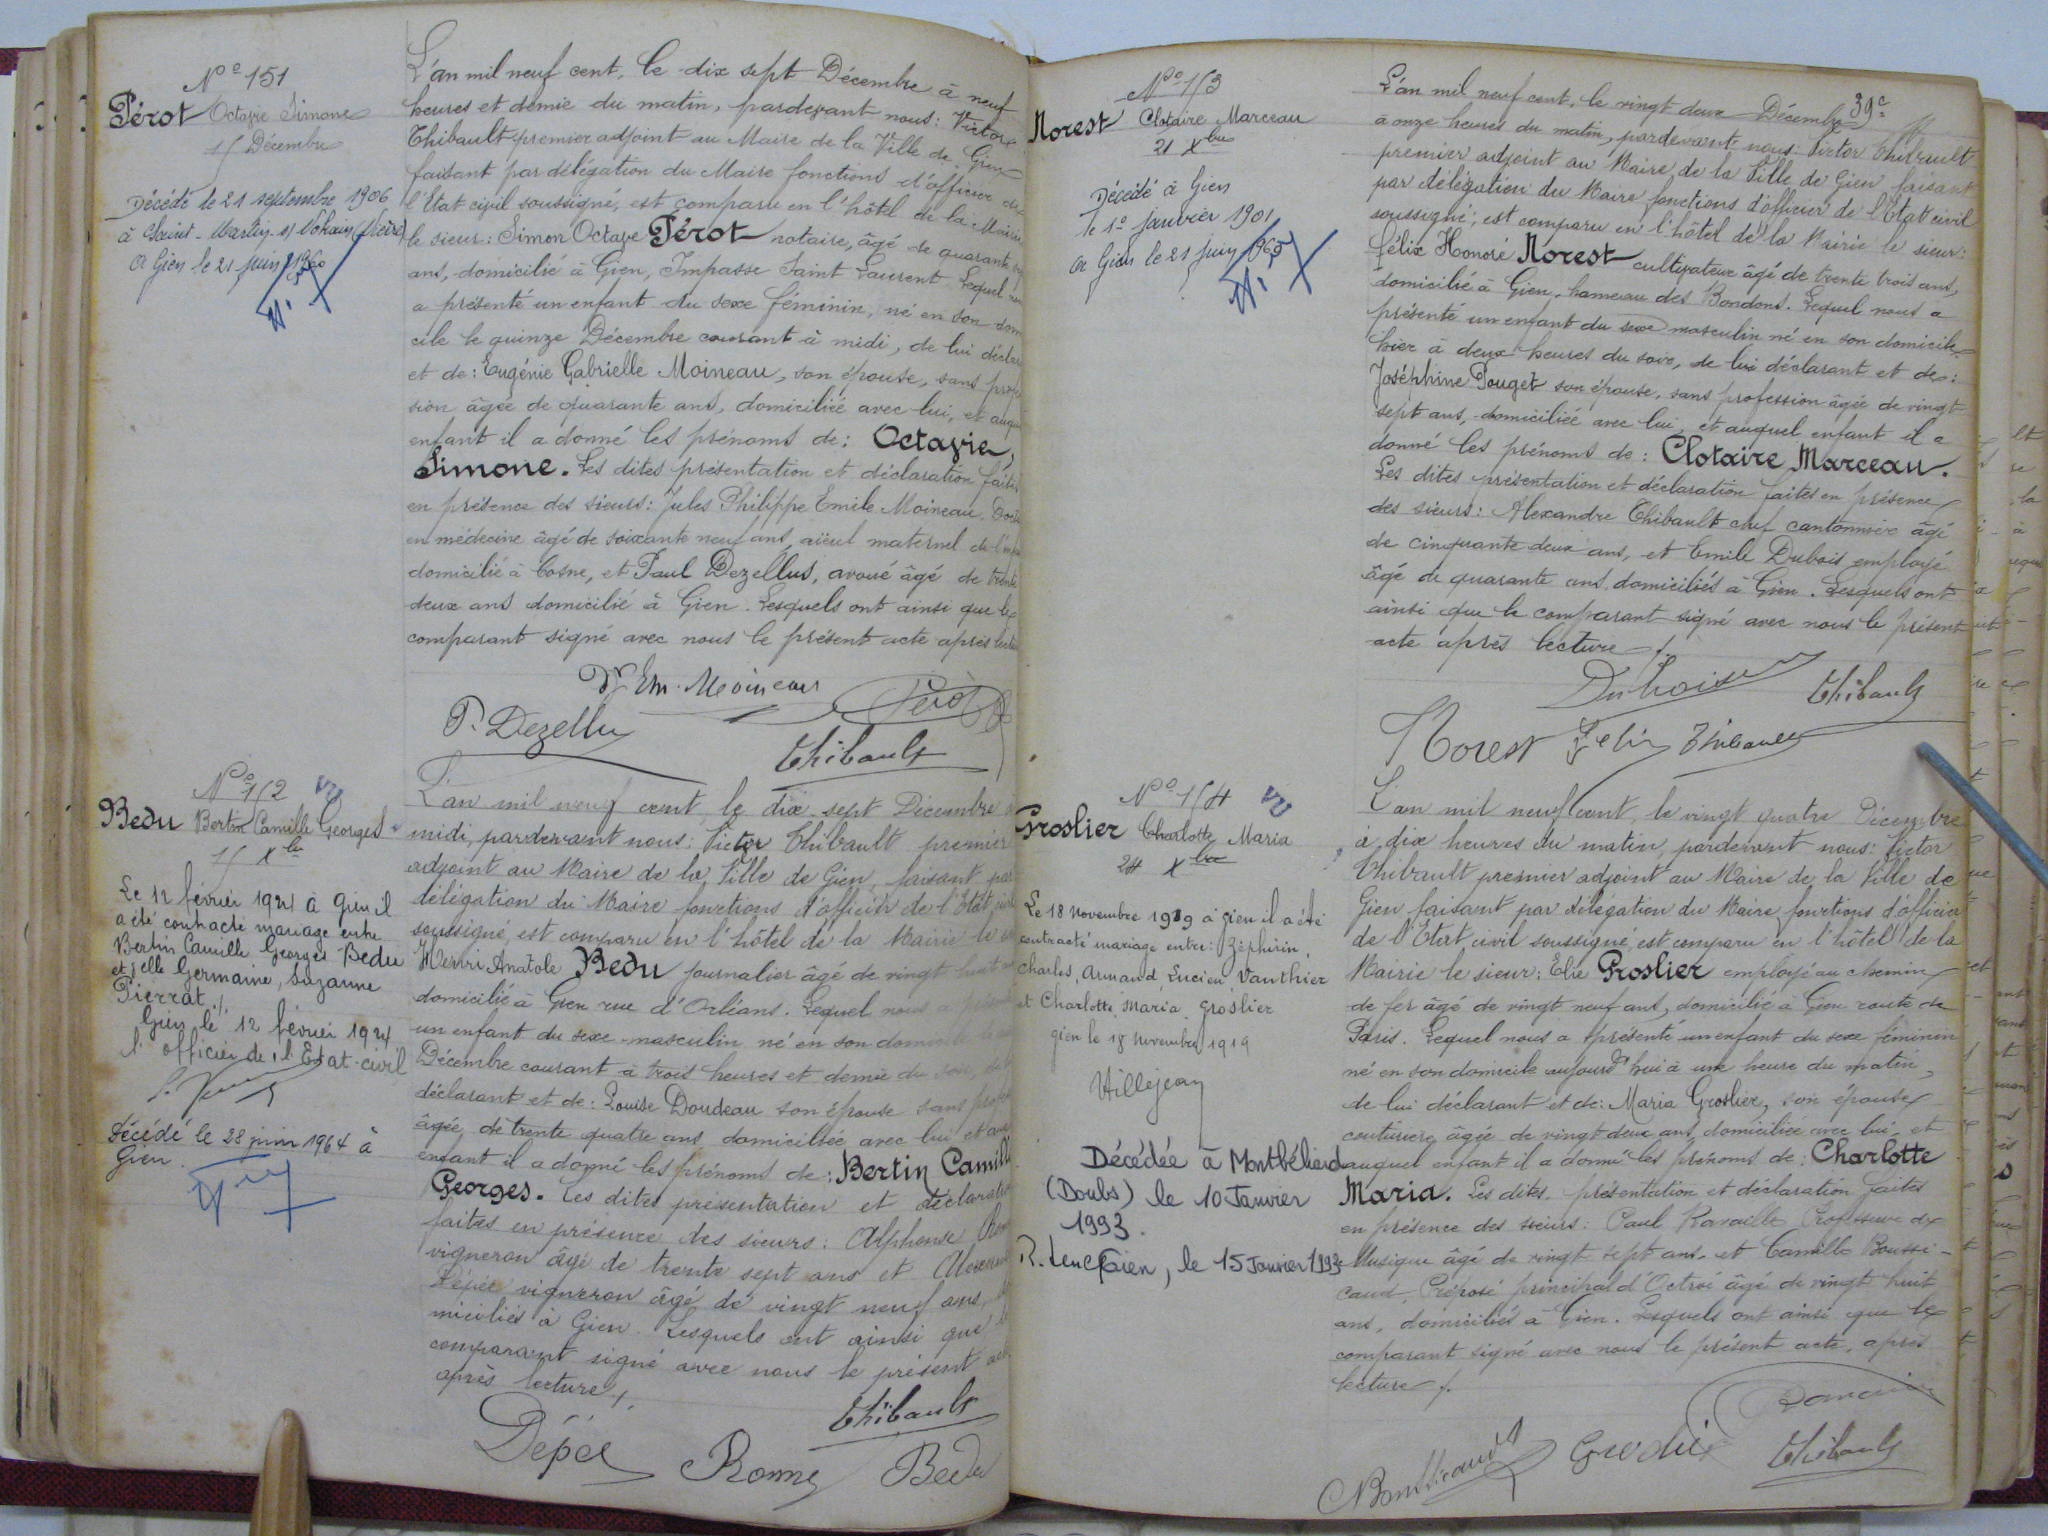 N° 151
Pérot Octavie Simone
15 Décembre
Décédé le 21 septembre 1906
à Saint-Martin-s/-Nohain (Nièvre)
A Gien le 21 juin 1960
L'an mil neuf cent, le dix sept Décembre à neuf
heures et demie du matin, pardevant nous: Victor
Thibault premier adjoint au Maire de la Ville de Gien
faisant par délégation du Maire fonctions d'officier de
l'Etat civil soussigné, est comparu en l'hôtel de la Mairie
le sieur: Simon Octave Pérot notaire, âgé de quarante
ans, domicilié à Gien, Impasse Saint Laurent. Lequel nous
a présenté un enfant du sexe féminin, né en son domi
cile le quinze Décembre courant à midi, de lui déclarant
et de: Eugénie Gabrielle Moineau, son épouse, sans profes
sion âgée de quarante ans, domiciliée avec lui, et auquel
enfant il a donné les prénoms de: Octavie,
Simone. Les dites présentation et déclaration faites
en présence des sieurs: Jules Philippe Emile Moineau, Docteur
en médecine âgé de soixante neuf ans, aïeul maternel de l'enfant
domicilié à Cosne, et Paul Dezellus, avoué âgé de trente
deux ans domicilié à Gien. Lesquels ont ainsi que le
comparant signé avec nous le présent acte après lecture
Dr Em. Moineau
Pérot
P. Dezellus
Thibault
N° 152
Vu
Bedu Bertin Camille Georges
15 Xbre
Le 12 février 1921 à Gien il
a été contracté mariage entre
Bertin Camille Georges Bedu
et elle Germaine, Suzanne
Pierrat ./.
Gien le 12 février 1921
l'officier de l'Etat-civil
Décédé le 28 juin 1964 à
Gien.
L'an mil neuf cent, le dix sept Décembre à
midi, pardevant nous: Victor Thibault premier
adjoint au Maire de la Ville de Gien, faisant par
délégation du Maire fonctions d'officier de l'Etat civil
soussigné, est comparu en l'hôtel de la Mairie le sieur
Henri Anatole Bedu journalier âgé de vingt huit ans
domicilié à Gien rue d'Orléans. Lequel nous a présenté
un enfant du sexe masculin né en son domicile
Décembre courant à trois heures et demie du soir, de lui
déclarant et de: Louise Doudeau son épouse sans profes
âgée de trente quatre ans domiciliée avec lui et auquel
enfant il a donné les prénoms de: Bertin Camille
Georges. Les dites présentation et déclaration
faites en présence des sieurs: Alphonse
vigneron âgé de trente sept ans et Alexandre
Dépée vigneron âgé de vingt neuf ans, do
miciliés à Gien. Lesquels ont ainsi que le
comparant signé avec nous le présent acte
après lecture ./.
Thibault
Dépée Ronne Bedu
39e
N° 153
Norest Clotaire Marceau
21 Xbre
Décédé à Gien
le 1er janvier 1901
A Gien le 21 juin 1960
L'an mil neuf cent, le vingt deux Décembre
à onze heures du matin, pardevant nous: Victor Thibault
premier adjoint au Maire de la Ville de Gien faisant
par délégation du Maire fonctions d'officier de l'Etat civil
soussigné, est comparu en l'hôtel de la Mairie le sieur:
Félix Honoré Norest cultivateur âgé de trente trois ans,
domicilié à Gien, hameau des Bondons. Lequel nous a
présenté un enfant du sexe masculin né en son domicile
hier à deux heures du soir, de lui déclarant et de:
Joséphine Pouget son épouse, sans profession âgée de vingt
sept ans, domiciliée avec lui, et auquel enfant il a
donné les prénoms de: Clotaire Marceau.
Les dites présentation et déclaration faites en présence
des sieurs: Alexandre Thibault chef cantonnier âgé
de cinquante deux ans, et Emile Dubois employé
âgé de quarante ans domiciliés à Gien. Lesquels ont
ainsi que le comparant signé avec nous le présent
acte après lecture ./.
Dubois Thibault
Norest Felix Thibault
N° 154
Vu
Groslier Charlotte Maria
24 Xbre
Le 18 novembre 1919 à Gien il a été
contracté mariage entre: Zéphirin,
Charles, Armand, Lucien Vauthier
et Charlotte, Maria Groslier
Gien le 18 novembre 1919
Villejean
Décédée à Montbéliard
(Doubs) le 10 Janvier
1993.
Gien, le 15 Janvier 1993
L'an mil neuf cent, le vingt quatre Décembre
à dix heures du matin, pardevant nous: Victor
Thibault premier adjoint au Maire de la Ville de
Gien faisant par délégation du Maire fonctions d'officier
de l'Etat civil soussigné, est comparu en l'hôtel de la
Mairie le sieur: Elie Groslier employé au chemin
de fer âgé de vingt neuf ans, domicilié à Gien route de
Paris. Lequel nous a présenté un enfant du sexe féminin
né en son domicile aujourd'hui à une heure du matin,
de lui déclarant et de: Maria Groslier, son épouse
couturière âgée de vingt deux ans domiciliée avec lui et
auquel enfant il a donné les prénoms de: Charlotte
Maria. Les dites présentation et déclaration faites
en présence des sieurs: Paul Ravaille Professeur de
Musique âgé de vingt sept ans et Camille Boussi-
caud, Préposé principal d'Octroi âgé de vingt huit
ans, domiciliés à Gien. Lesquels ont ainsi que le
comparant signé avec nous le présent acte, après
lecture ./.
Thibault